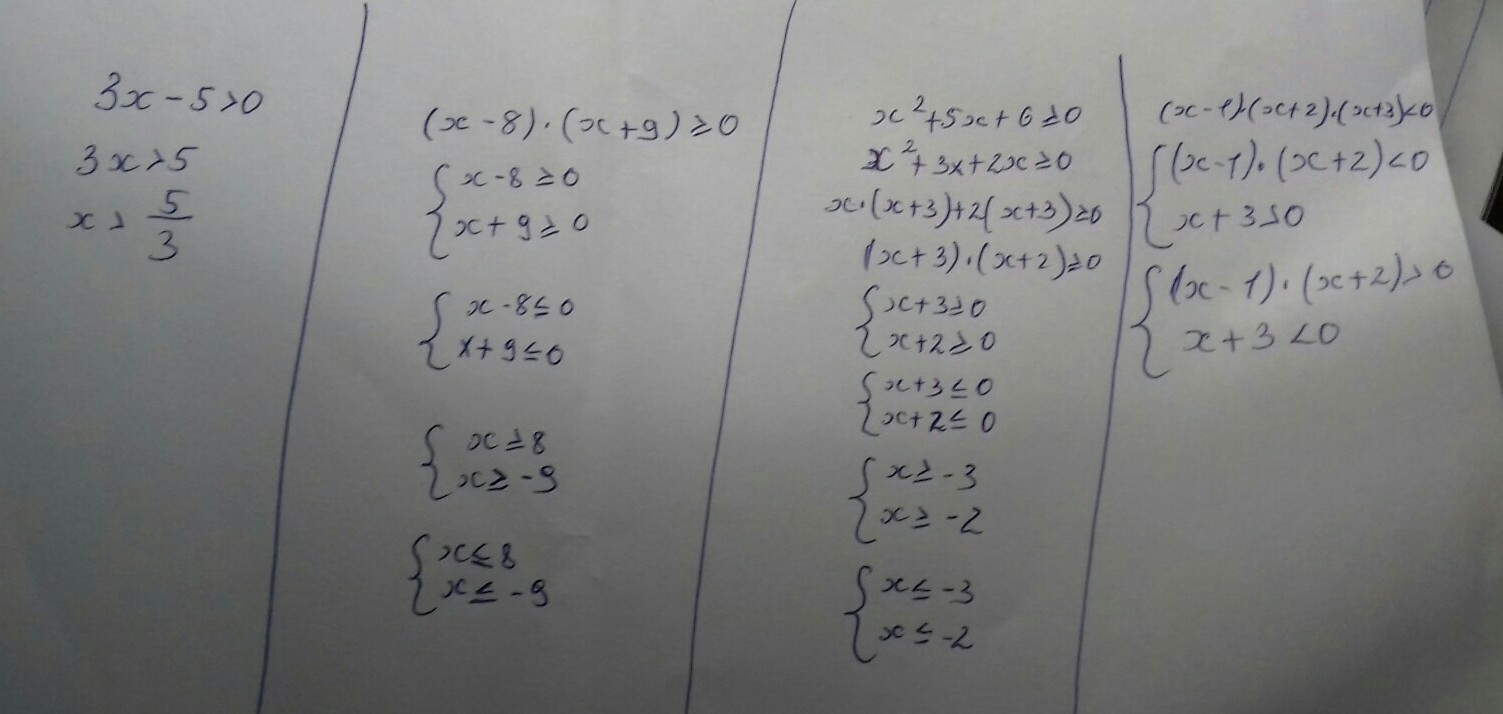 3x - 5 > 0
3x > 5
x > 5/3
(x - 8) · (x + 9) ≥ 0
{ x - 8 ≥ 0
x + 9 ≥ 0
{ x - 8 ≤ 0
x + 9 ≤ 0
{ x ≥ 8
x ≥ -9
{ x ≤ 8
x ≤ -9
x² + 5x + 6 ≥ 0
x² + 3x + 2x ≥ 0
x · (x + 3) + 2(x + 3) ≥ 0
(x + 3) · (x + 2) ≥ 0
{ x + 3 ≥ 0
x + 2 ≥ 0
{ x + 3 ≤ 0
x + 2 ≤ 0
{ x ≥ -3
x ≥ -2
{ x ≤ -3
x ≤ -2
(x - 1) · (x + 2) · (x + 3) < 0
{ (x - 1) · (x + 2) < 0
x + 3 > 0
{ (x - 1) · (x + 2) > 0
x + 3 < 0